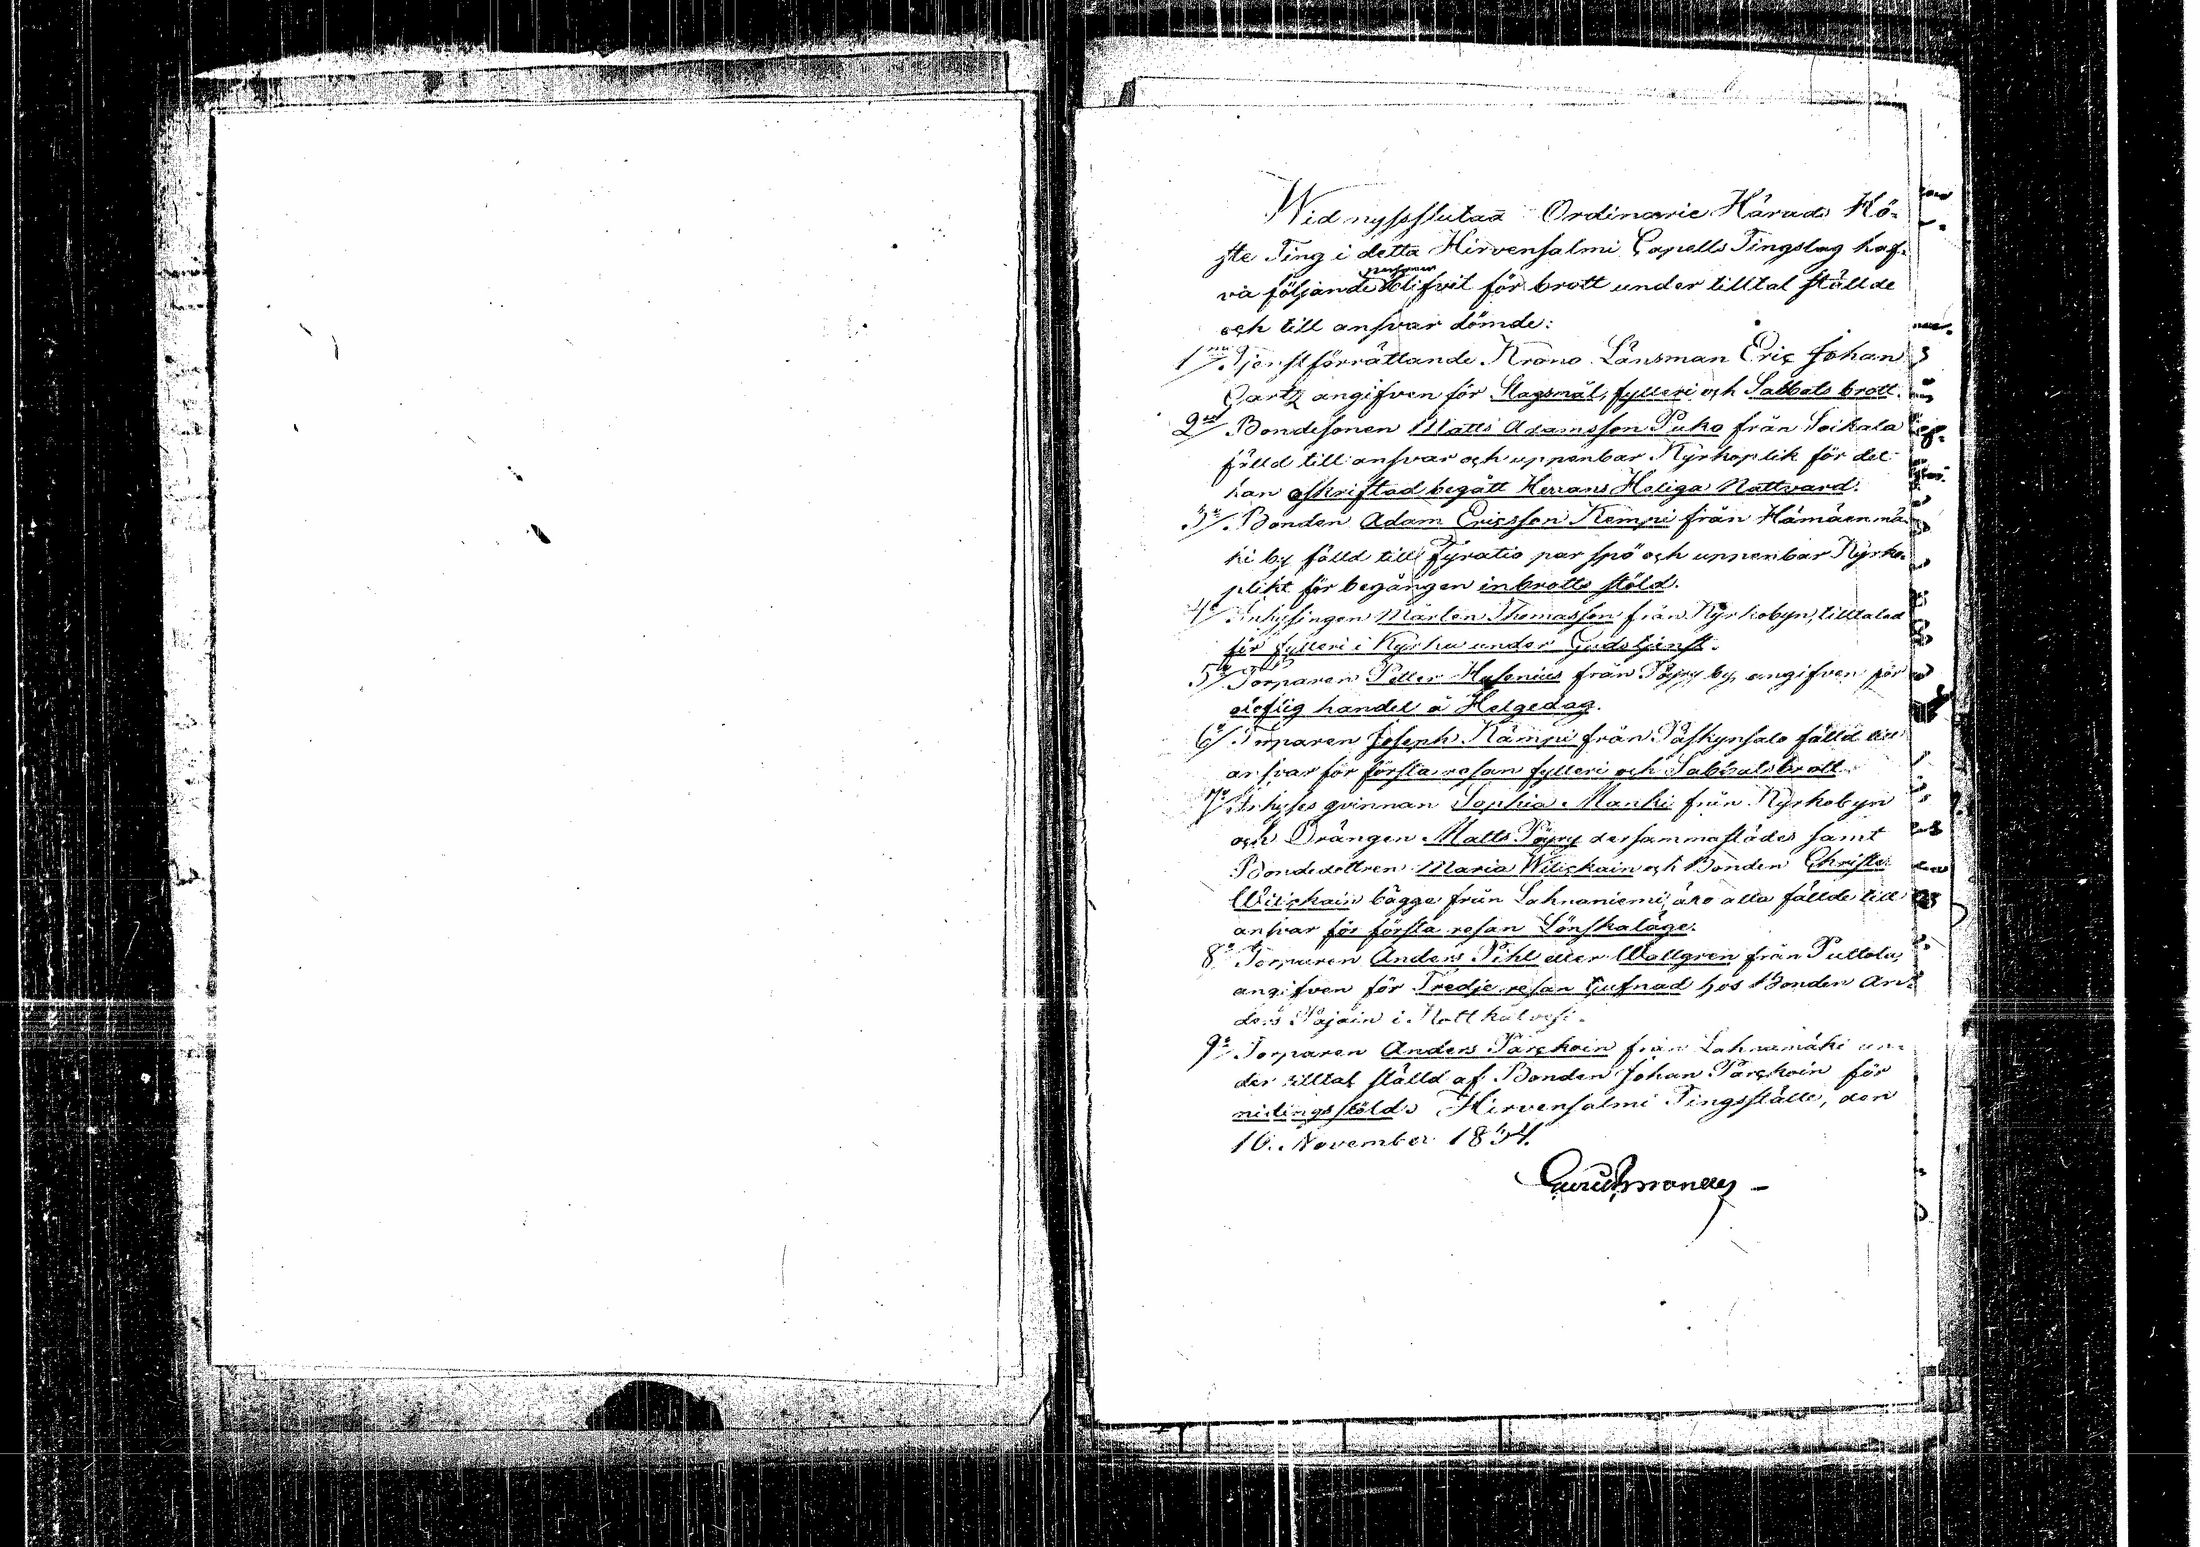 Wid nyssslutad Ordinarie Härads Hö-
ste Ting i detta Hirvensalmi Capells Tingslag haf-
va följande personer blifvit för brott under tilltal ställde
och till ansvar dömde:
1mo Tjenstförrättande Krono Länsman Eric Johan
Gartz angifven för Slagsmål, fylleri och Sabbats brott.
2do Bondesonen Matts Adamsson Puko från Soikala
fälld till ansvar och uppenbar Kyrkoplik för det
han oskriftad begått Herrans Heliga Nattvard.
3o Bonden Adam Ericsson Kempi från Hämäenmä-
ki by fälld till Fyratio par spö och uppenbar Kyrko-
plikt för begången inbrotts stöld.
4o Inhysingen Mårten Thomasson från Kyrkobyn, tilltalad
för fylleri i Kyrka under Gudstjenst.
5o Torparen Petter Husenius från Pöyry by, angifven för
oloflig handel å Helgedag.
6o Torparen Joseph Kämpi från Päskynsalo fälld till
ansvar för första resan fylleri och Sabbatsbrott.
7o Inhyses qvinnan Sophia Manki från Kyrkobyn
och Drängen Matts Pöyry dersammastädes samt
Bondedottren Maria Wilickain och Bonden Christer
Wilickain bägge från Lahnaniemi, äro alla fällde till
ansvar för första resan Lönskaläge.
8o Torparen Anders Pihl eller Wallgren från Puttola,
angifven för Tredje resan tjufnad hos Bonden An-
ders Pajain i Kotthalvesi.
9o Torparen Anders Parckain från Lahnamäki un-
der tilltal ställd af Bonden Johan Parckain för
nidingsstöld. Hirvensalmi Tingsställe, den
16. November 1834.